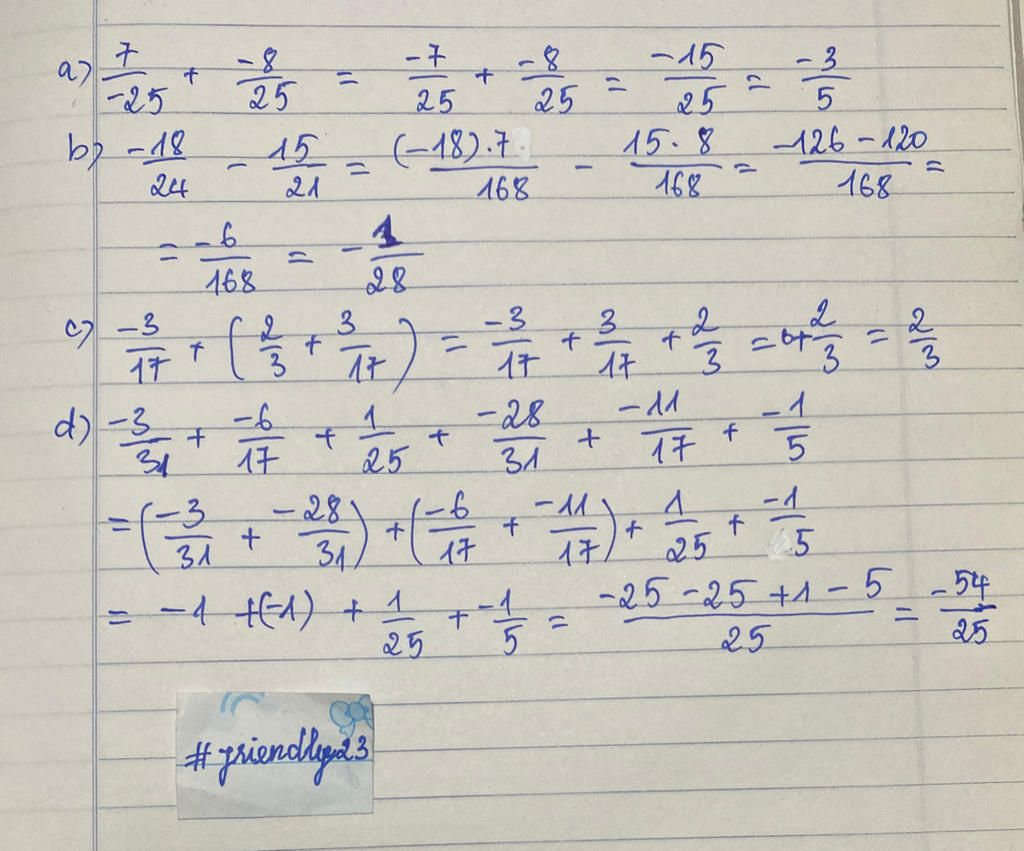 a) 7/-25 + -8/25 = -7/25 + -8/25 = -15/25 = -3/5
b) -18/24 - 15/21 = (-18).7/168 - 15.8/168 = -126-120/168 =
= -6/168 = -1/28
c) -3/17 + (2/3 + 3/17) = -3/17 + 3/17 + 2/3 = 0+2/3 = 2/3
d) -3/31 + -6/17 + 1/25 + -28/31 + -11/17 + -1/5
= (-3/31 + -28/31) + (-6/17 + -11/17) + 1/25 + -1/5
= -1 +(-1) + 1/25 + -1/5 = -25-25+1-5/25 = -54/25
#friendly23